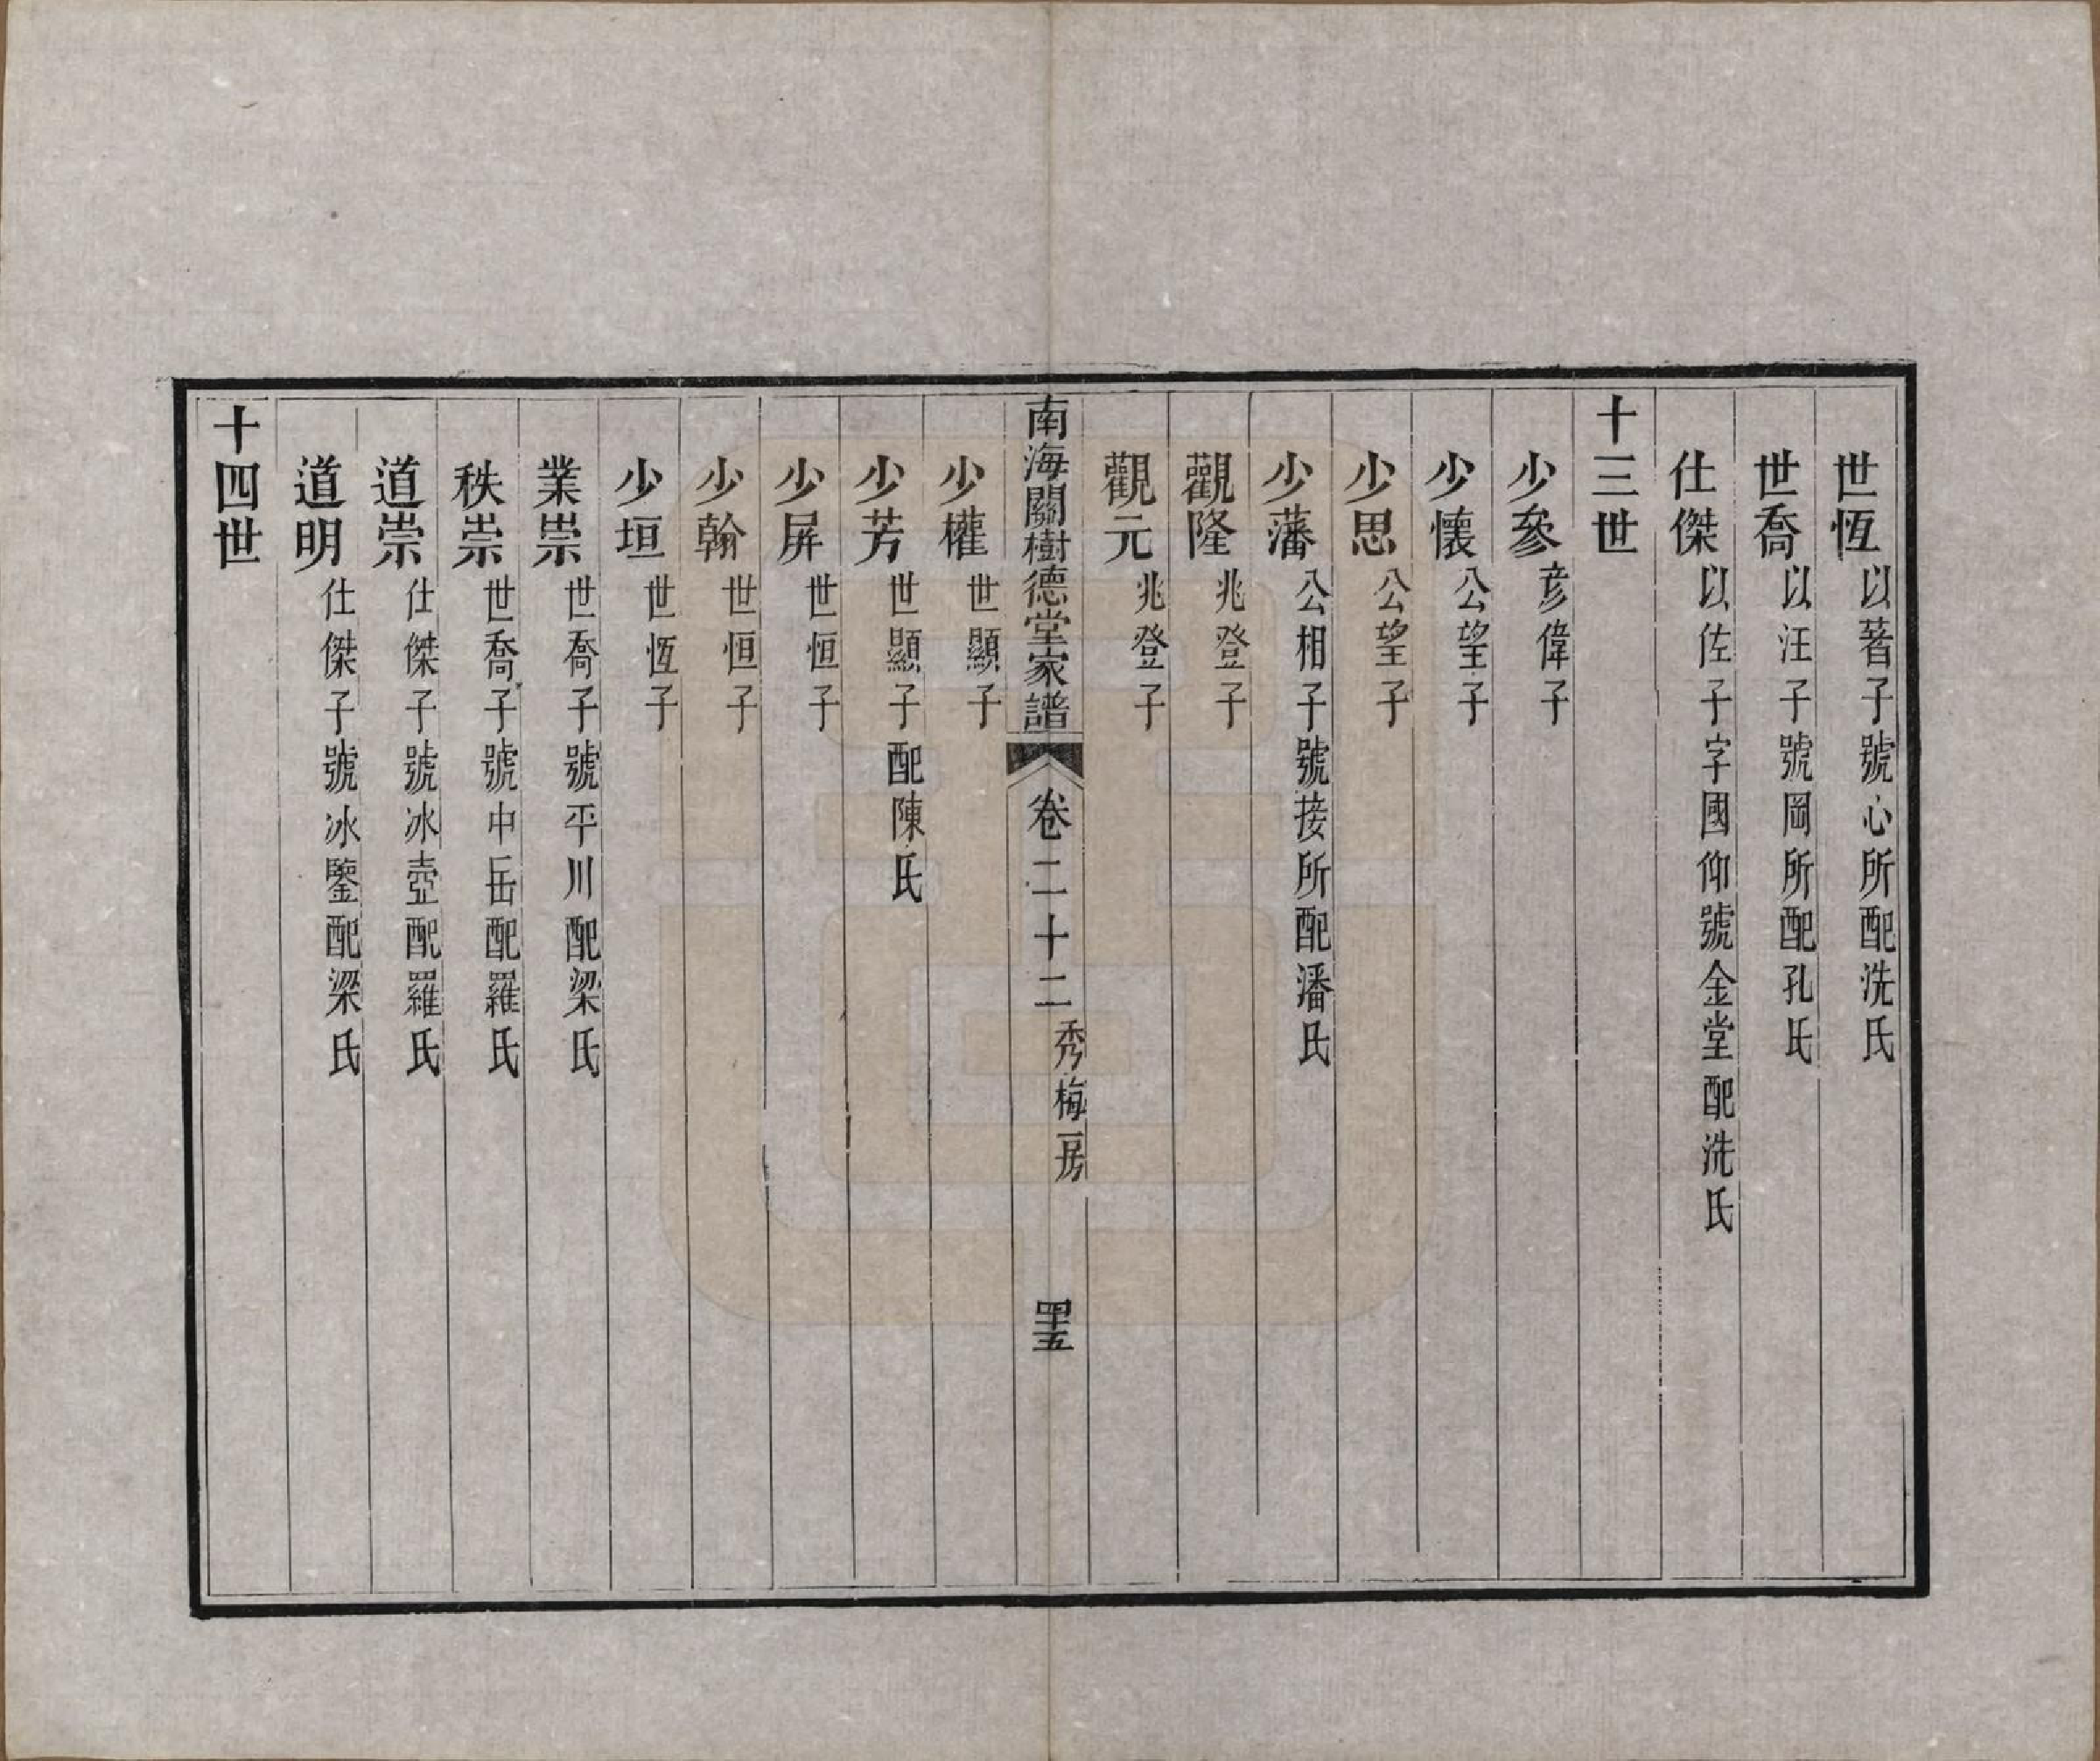 世恆以著子號心所配冼氏
世喬以汪子號岡所配孔氏
仕傑以佐子字國仰號金堂配冼氏
十三世
少參彦偉子
少懷公望子
少思公望子
少藩公相子號接所配潘氏
觀隆兆登子
觀元兆登子
南海關樹德堂家譜 卷二十二秀梅房 四十五
少權世顯子
少芳世顯子配陳氏
少屏世恒子
少翰世恒子
少垣世恆子
業崇世喬子號平川配梁氏
秩崇世喬子號中岳配羅氏
道崇仕傑子號冰壺配羅氏
道明仕傑子號冰鑒配梁氏
十四世